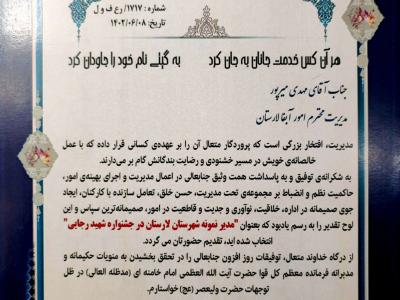 شماره: ۱۷۱۷/ رع ف و ل
تاریخ: ۱۴۰۲/۰۶/۰۸
هر آن کس خدمت جانان به جان کرد به گیتی نام خود را جاودان کرد
جناب آقای مهدی میرپور
مدیریت محترم امور آبفا لارستان
مدیریت، افتخار بزرگی است که پروردگار متعال آن را بر عهده‌ی کسانی قرار داده که با عمل
خالصانه‌ی خویش در مسیر خشنودی و رضایت بندگانش گام بر می‌دارند.
به شکرانه‌ی توفیق و به پاسداشت همت وثیق جنابعالی در اعمال مدیریت و اجرای بهینه‌ی امور،
حاکمیت نظم و انضباط بر مجموعه‌ی تحت مدیریت، حسن خلق، تعامل سازنده با کارکنان، ایجاد
جوی صمیمانه در اداره، خلاقیت، نوآوری و جدیت و قاطعیت در امور، صمیمانه‌ترین سپاس و این
لوح تقدیر را به رسم یادبود که بعنوان "مدیر نمونه شهرستان لارستان در جشنواره شهید رجایی"
انتخاب شده اید، تقدیم حضورتان می گردد.
از درگاه خداوند متعال، توفیقات روز افزون جنابعالی را در تحقق بخشیدن به منویات حکیمانه و
مدبرانه فرمانده معظم کل قوا حضرت آیت الله العظمی امام خامنه ای (مدظله العالی) در ظل
توجهات حضرت ولیعصر (عج) خواستارم.